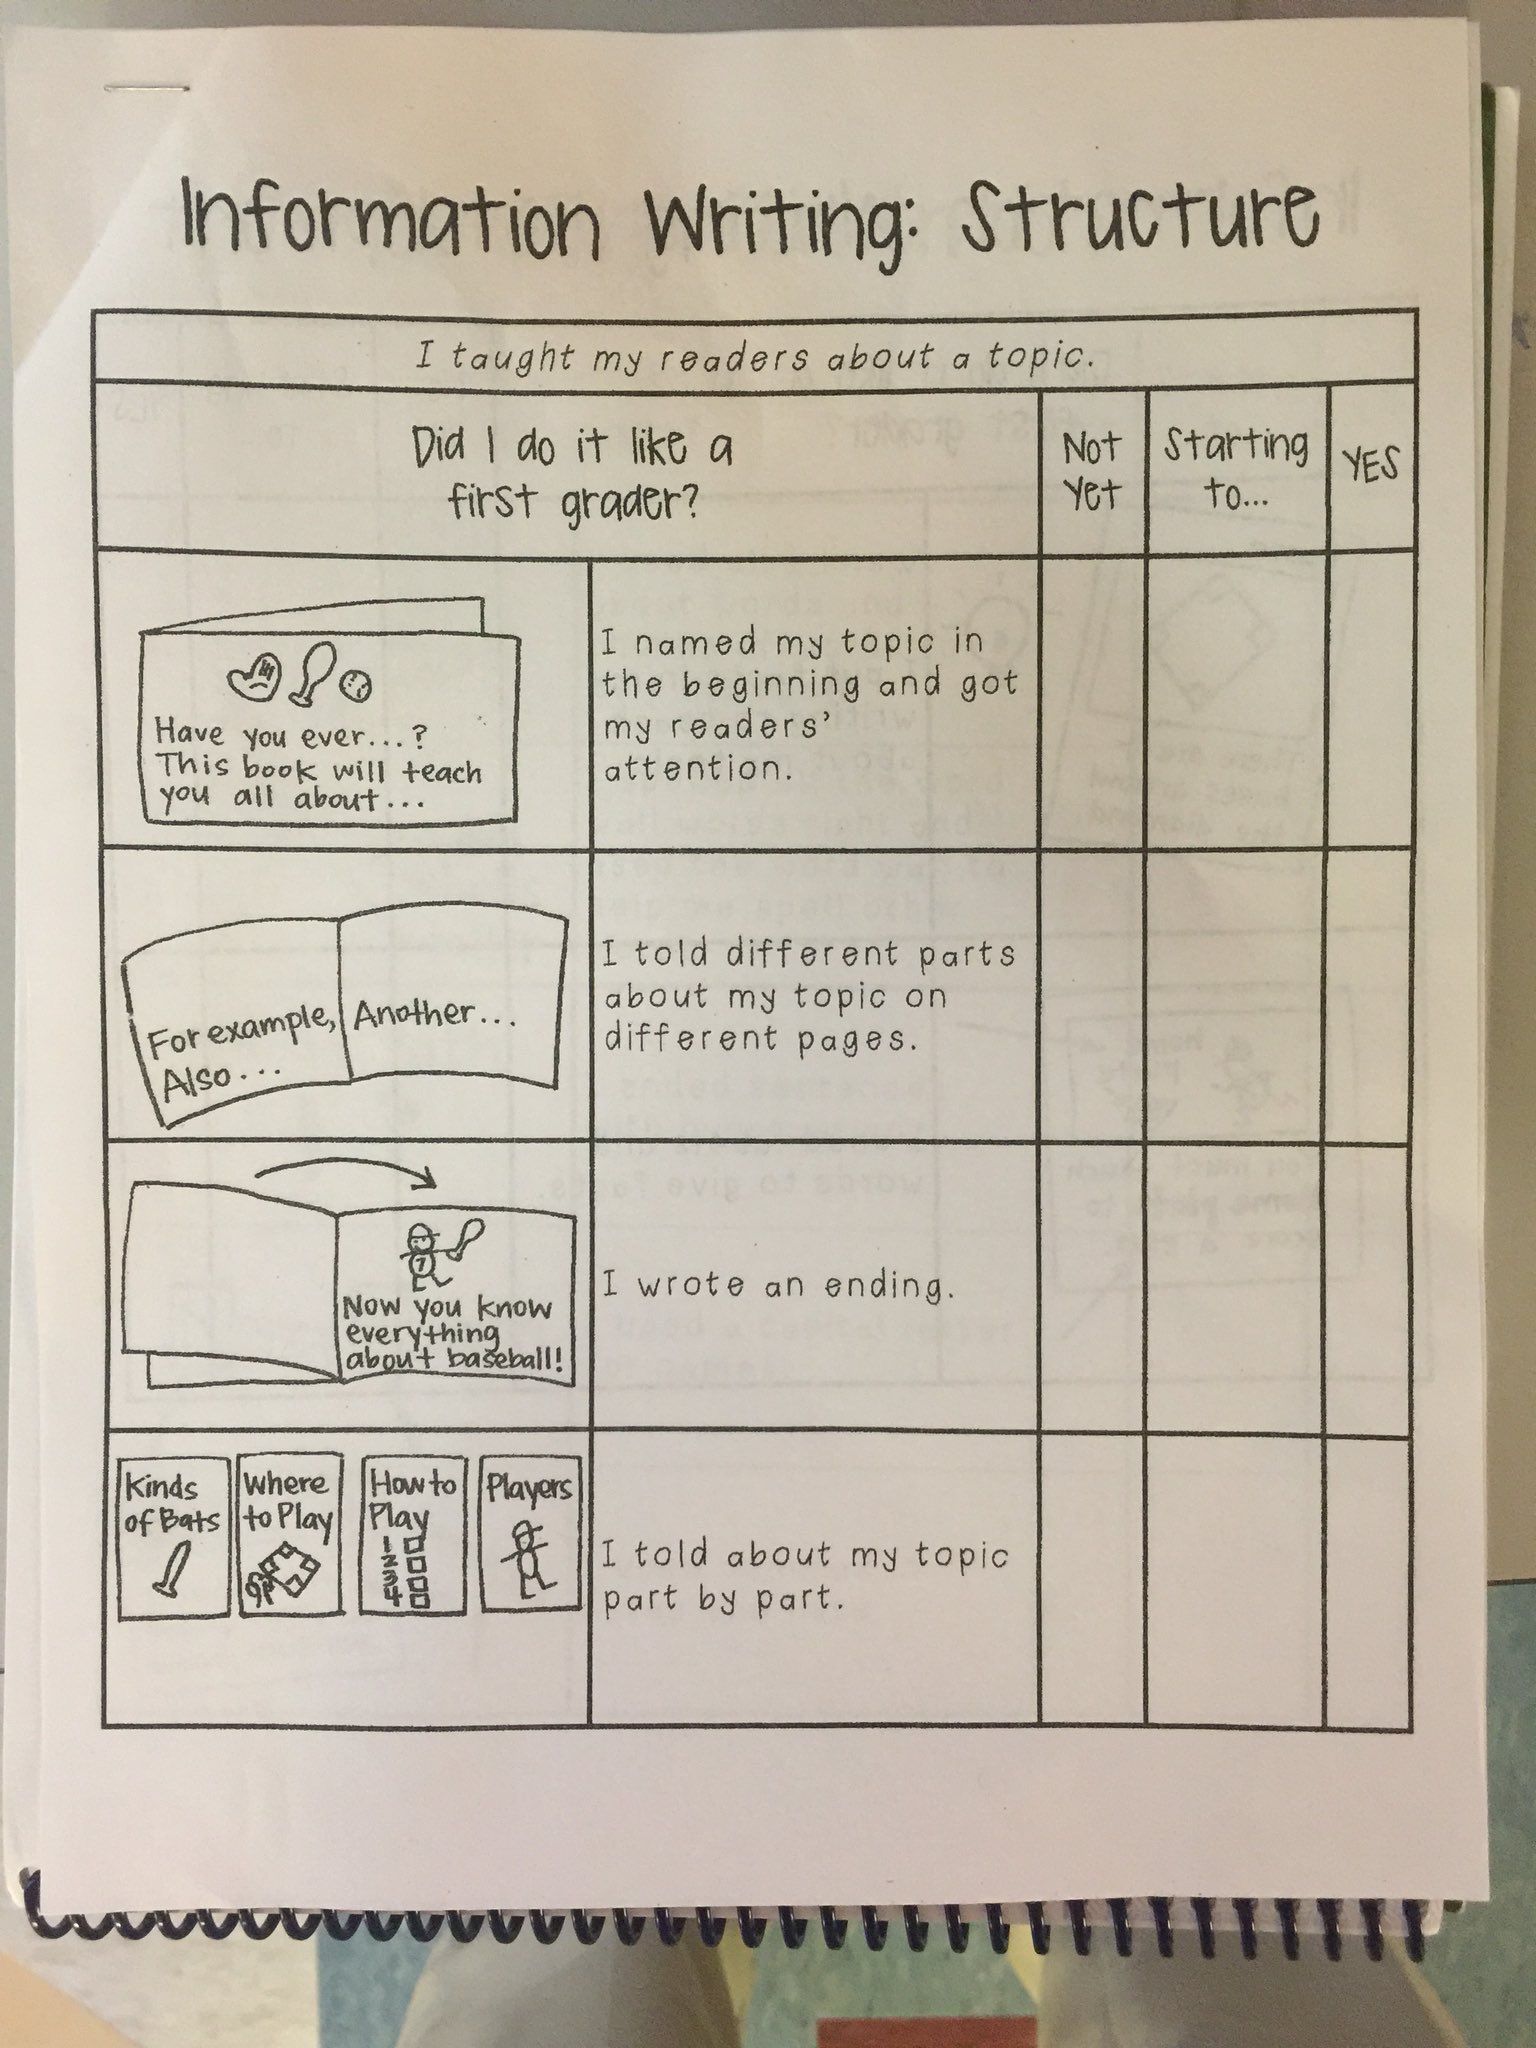 Information Writing: Structure
I taught my readers about a topic.
Did I do it like a
first grader?
Not
Yet
Starting
to...
YES
Have you ever...?
This book will teach
you all about...
I named my topic in
the beginning and got
my readers'
attention.
For example,
Also...
Another...
I told different parts
about my topic on
different pages.
7
Now you know
everything
about baseball!
I wrote an ending.
Kinds
of Bats
Where
to Play
How to
Play
1
2
3
4
Players
I told about my topic
part by part.